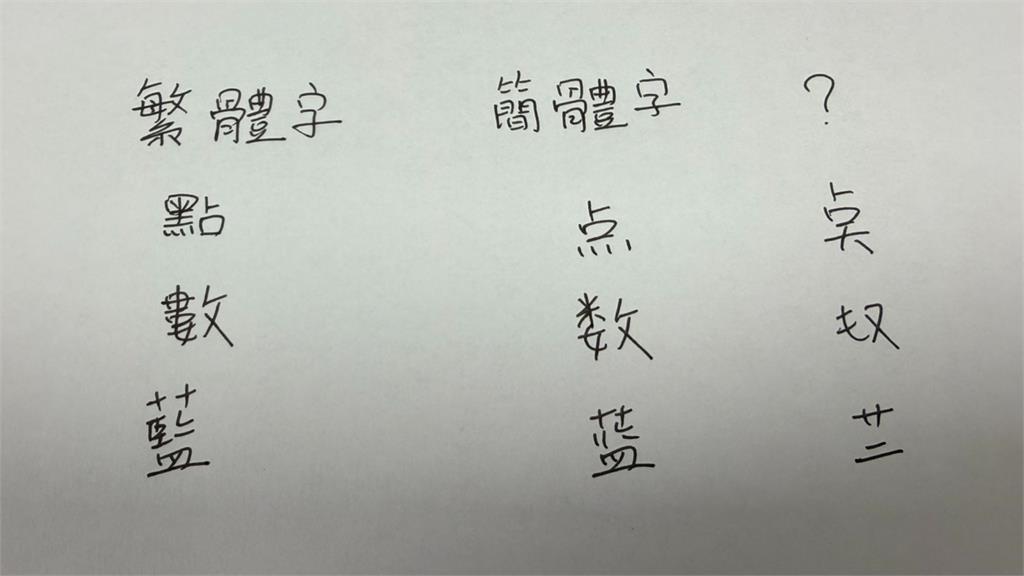 繁體字 簡體字 ?
點 点 奌
數 数
藍 蓝